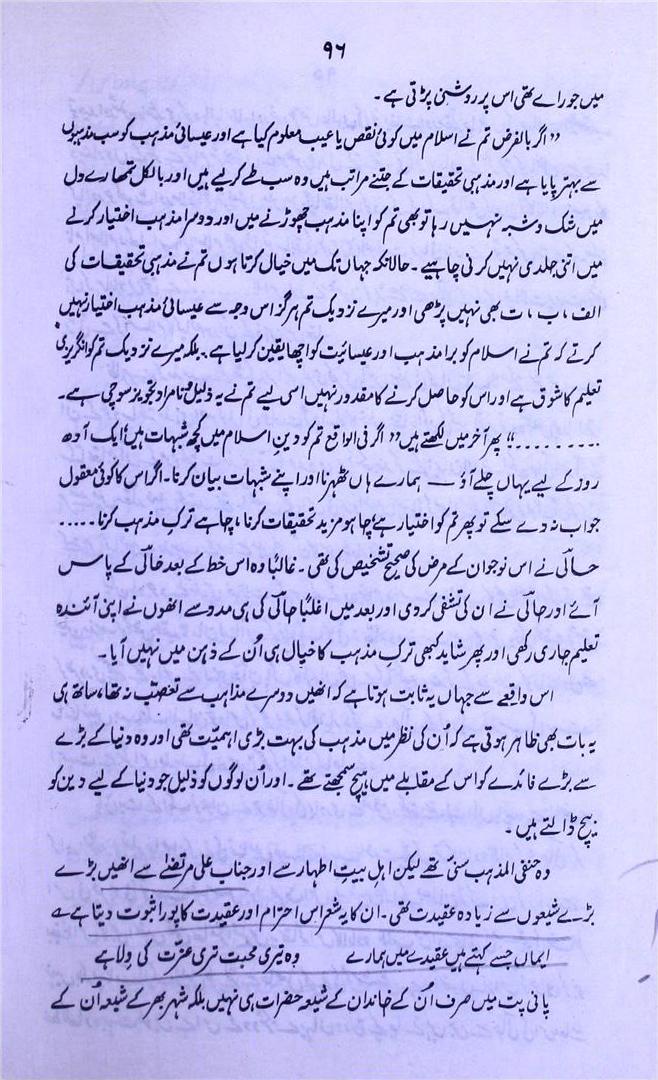 ۹۶
میں جو راے تھی اس پر روشنی پڑتی ہے۔
”اگر بالفرض تم نے اسلام میں کوئی نقص یا عیب معلوم کیا ہے اور عیسائی مذہب کو سب مذہبوں
سے بہتر پایا ہے اور مذہبی تحقیقات کے جتنے مراتب ہیں وہ سب طے کر لیے ہیں اور بالکل تمھارے دل
میں شک و شبہ نہیں رہا تو بھی تم کو اپنا مذہب چھوڑنے میں اور دوسرا مذہب اختیار کرنے
میں اتنی جلدی نہیں کرنی چاہیے۔ حالانکہ جہاں تک میں خیال کرتا ہوں تم نے مذہبی تحقیقات کی
الف، ب، ت بھی نہیں پڑھی اور میرے نزدیک تم ہرگز اس وجہ سے عیسائی مذہب اختیار نہیں
کرتے کہ تم نے اسلام کو برا مذہب اور عیسائیت کو اچھا یقین کر لیا ہے۔ بلکہ میرے نزدیک تم کو انگریزی
تعلیم کا شوق ہے اور اس کو حاصل کرنے کا مقدور نہیں اسی لیے تم نے یہ ذلیل و نامراد تجویز سوچی ہے۔
.........“ پھر آخر میں لکھتے ہیں” اگر فی الواقع تم کو دینِ اسلام میں کچھ شبہات ہیں ایک آدھ
روز کے لیے یہاں چلے آؤ — ہمارے ہاں ٹھہرنا اور اپنے شبہات بیان کرنا۔ اگر اس کا کوئی معقول
جواب نہ دے سکے تو پھر تم کو اختیار ہے چاہو مزید تحقیقات کرنا، چاہے ترکِ مذہب کرنا.....
حالیؔ نے اس نوجوان کے مرض کی صحیح تشخیص کی تھی۔ غالباً وہ اس خط کے بعد حالیؔ کے پاس
آئے اور حالیؔ نے ان کی تشفی کر دی اور بعد میں اغلباً حالیؔ کی ہی مدد سے انھوں نے اپنی آئندہ
تعلیم جاری رکھی اور پھر شاید کبھی ترکِ مذہب کا خیال ہی اُن کے ذہن میں نہیں آیا۔
اس واقعے سے جہاں یہ ثابت ہوتا ہے کہ انھیں دوسرے مذاہب سے تعصب نہ تھا، ساتھ ہی
یہ بات بھی ظاہر ہوتی ہے کہ اُن کی نظر میں مذہب کی بہت بڑی اہمیت تھی اور وہ دنیا کے بڑے
سے بڑے فائدے کو اس کے مقابلے میں ہیچ سمجھتے تھے۔ اور اُن لوگوں کو ذلیل جو دنیا کے لیے دین کو
بیچ ڈالتے ہیں۔
وہ حنفی المذہب سنی تھے لیکن اہلِ بیتِ اطہار سے اور جناب علی مرتضیٰ سے انھیں بڑے
بڑے شیعوں سے زیادہ عقیدت تھی۔ ان کا یہ شعر اس احترام اور عقیدت کا پورا ثبوت دیتا ہے ؎
ایماں جسے کہتے ہیں عقیدے میں ہمارے وہ تیری محبت تری عزت کی وِلا ہے
پانی پت میں صرف اُن کے خاندان کے شیعہ حضرات ہی نہیں بلکہ شہر بھر کے شیعہ اُن کے